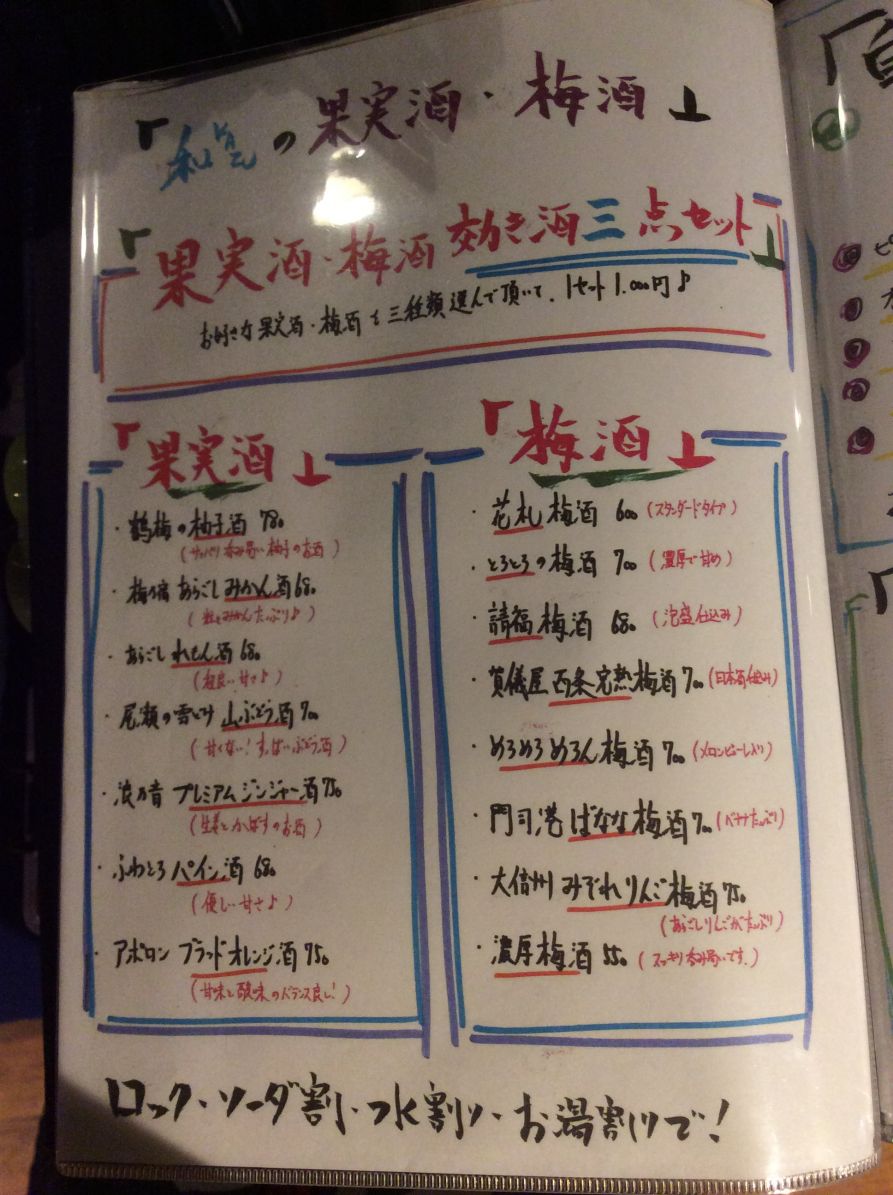 「和 の 果実酒・梅酒」
「果実酒・梅酒 効き酒三点セット」
お好きな果実酒・梅酒を三種類選んで頂いて、1セット1,000円♪
「果実酒」
・鶴梅の柚子酒 780
(サッパリ呑み易い柚子のお酒)
・梅乃宿 あらごしみかん酒 680
(粒々みかんたっぷり♪)
・あらごし れもん酒 680
(程良い甘さ♪)
・尾瀬の雪どけ 山ぶどう酒 700
(甘くない!すっぱいぶどう酒)
・浪乃音 プレミアムジンジャー酒 750
(生姜とかぼすのお酒)
・ふわとろ パイン酒 680
(優しい甘さ♪)
・アポロン ブラッドオレンジ酒 750
(甘味と酸味のバランス良し!)
「梅酒」
・花札 梅酒 600 (スタンダードタイプ)
・とろとろの梅酒 700 (濃厚で甘め)
・請福 梅酒 680 (泡盛仕込み)
・賀儀屋 西条完熟梅酒 700 (日本酒仕込み)
・めろめろめろん梅酒 700 (メロンピューレ入り)
・門司港 ばなな梅酒 700 (バナナたっぷり)
・大信州 みぞれりんご梅酒 750
(あらごしりんごがたっぷり)
・濃厚梅酒 550 (スッキリ呑み易いです。)
ロック・ソーダ割・水割り・お湯割りで!